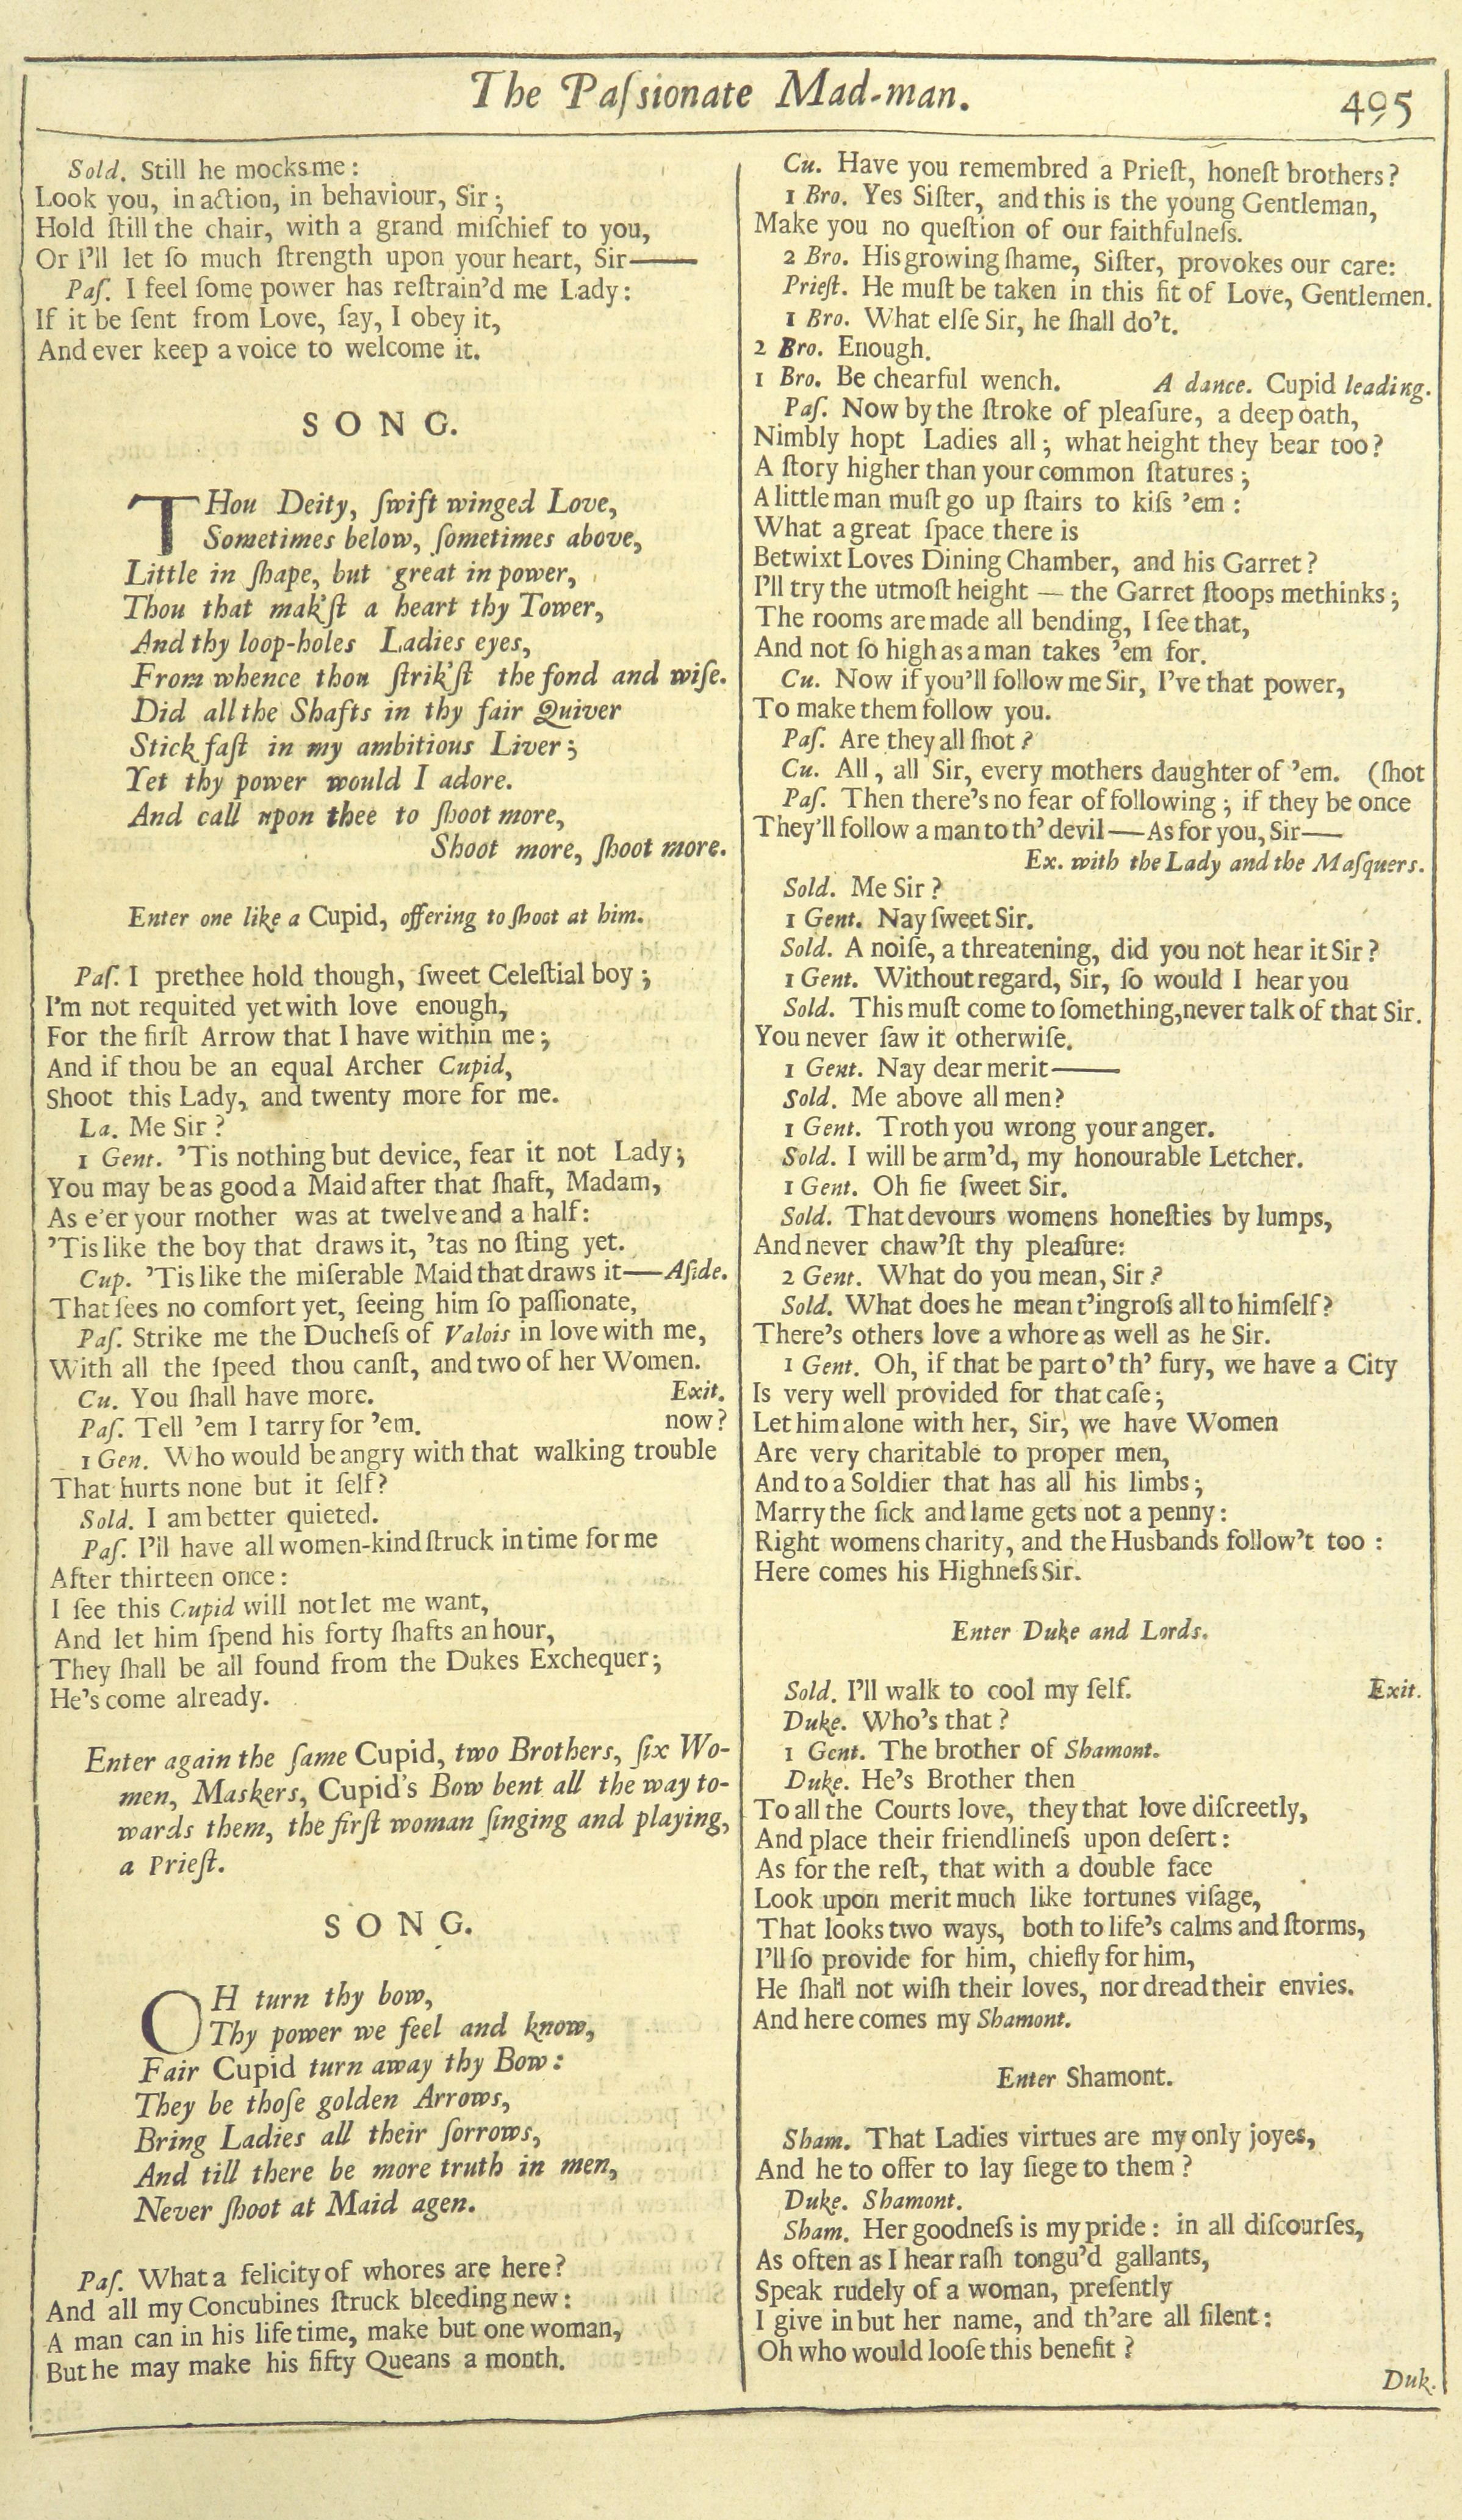 The Paſsionate Mad-man.
495
Sold. Still he mocks me:
Look you, in action, in behaviour, Sir;
Hold ſtill the chair, with a grand miſchief to you,
Or I'll let ſo much ſtrength upon your heart, Sir——
Paſ. I feel ſome power has reſtrain'd me Lady:
If it be ſent from Love, ſay, I obey it,
And ever keep a voice to welcome it.
SONG.
THou Deity, ſwift winged Love,
Sometimes below, ſometimes above,
Little in ſhape, but great in power,
Thou that mak'ſt a heart thy Tower,
And thy loop-holes Ladies eyes,
From whence thou ſtrik'ſt the fond and wiſe.
Did all the Shafts in thy fair Quiver
Stick faſt in my ambitious Liver;
Yet thy power would I adore.
And call upon thee to ſhoot more,
Shoot more, ſhoot more.
Enter one like a Cupid, offering to ſhoot at him.
Paſ. I prethee hold though, ſweet Celeſtial boy;
I'm not requited yet with love enough,
For the firſt Arrow that I have within me;
And if thou be an equal Archer Cupid,
Shoot this Lady, and twenty more for me.
La. Me Sir?
1 Gent. 'Tis nothing but device, fear it not Lady;
You may be as good a Maid after that ſhaft, Madam,
As e'er your mother was at twelve and a half:
'Tis like the boy that draws it, 'tas no ſting yet.
Cup. 'Tis like the miſerable Maid that draws it——Aſide.
That ſees no comfort yet, ſeeing him ſo paſſionate,
Paſ. Strike me the Ducheſs of Valois in love with me,
With all the ſpeed thou canſt, and two of her Women.
Cu. You ſhall have more. Exit.
Paſ. Tell 'em I tarry for 'em. now?
1 Gen. Who would be angry with that walking trouble
That hurts none but it ſelf?
Sold. I am better quieted.
Paſ. I'll have all women-kind ſtruck in time for me
After thirteen once:
I ſee this Cupid will not let me want,
And let him ſpend his forty ſhafts an hour,
They ſhall be all found from the Dukes Exchequer;
He's come already.
Enter again the ſame Cupid, two Brothers, ſix Wo-
men, Maskers, Cupid's Bow bent all the way to-
wards them, the firſt woman ſinging and playing,
a Prieſt.
SONG.
OH turn thy bow,
Thy power we feel and know,
Fair Cupid turn away thy Bow:
They be thoſe golden Arrows,
Bring Ladies all their ſorrows,
And till there be more truth in men,
Never ſhoot at Maid agen.
Paſ. What a felicity of whores are here?
And all my Concubines ſtruck bleeding new:
A man can in his life time, make but one woman,
But he may make his fifty Queans a month.
Cu. Have you remembred a Prieſt, honeſt brothers?
1 Bro. Yes Siſter, and this is the young Gentleman,
Make you no queſtion of our faithfulneſs.
2 Bro. His growing ſhame, Siſter, provokes our care:
Prieſt. He muſt be taken in this fit of Love, Gentlemen.
1 Bro. What elſe Sir, he ſhall do't.
2 Bro. Enough.
1 Bro. Be chearful wench. A dance. Cupid leading.
Paſ. Now by the ſtroke of pleaſure, a deep oath,
Nimbly hopt Ladies all; what height they bear too?
A ſtory higher than your common ſtatures;
A little man muſt go up ſtairs to kiſs 'em:
What a great ſpace there is
Betwixt Loves Dining Chamber, and his Garret?
I'll try the utmoſt height — the Garret ſtoops methinks;
The rooms are made all bending, I ſee that,
And not ſo high as a man takes 'em for.
Cu. Now if you'll follow me Sir, I've that power,
To make them follow you.
Paſ. Are they all ſhot?
Cu. All, all Sir, every mothers daughter of 'em. (ſhot
Paſ. Then there's no fear of following; if they be once
They'll follow a man to th' devil——As for you, Sir——
Ex. with the Lady and the Maſquers.
Sold. Me Sir?
1 Gent. Nay ſweet Sir.
Sold. A noiſe, a threatening, did you not hear it Sir?
1 Gent. Without regard, Sir, ſo would I hear you
Sold. This muſt come to ſomething, never talk of that Sir.
You never ſaw it otherwiſe.
1 Gent. Nay dear merit——
Sold. Me above all men?
1 Gent. Troth you wrong your anger.
Sold. I will be arm'd, my honourable Letcher.
1 Gent. Oh fie ſweet Sir.
Sold. That devours womens honeſties by lumps,
And never chaw'ſt thy pleaſure:
2 Gent. What do you mean, Sir?
Sold. What does he mean t'ingroſs all to himſelf?
There's others love a whore as well as he Sir.
1 Gent. Oh, if that be part o' th' fury, we have a City
Is very well provided for that caſe;
Let him alone with her, Sir, we have Women
Are very charitable to proper men,
And to a Soldier that has all his limbs;
Marry the ſick and lame gets not a penny:
Right womens charity, and the Husbands follow't too:
Here comes his Highneſs Sir.
Enter Duke and Lords.
Sold. I'll walk to cool my ſelf. Exit.
Duke. Who's that?
1 Gent. The brother of Shamont.
Duke. He's Brother then
To all the Courts love, they that love diſcreetly,
And place their friendlineſs upon deſert:
As for the reſt, that with a double face
Look upon merit much like fortunes viſage,
That looks two ways, both to life's calms and ſtorms,
I'll ſo provide for him, chiefly for him,
He ſhall not wiſh their loves, nor dread their envies.
And here comes my Shamont.
Enter Shamont.
Sham. That Ladies virtues are my only joyes,
And he to offer to lay ſiege to them?
Duke. Shamont.
Sham. Her goodneſs is my pride: in all diſcourſes,
As often as I hear raſh tongu'd gallants,
Speak rudely of a woman, preſently
I give in but her name, and th'are all ſilent:
Oh who would looſe this benefit?
Duk.